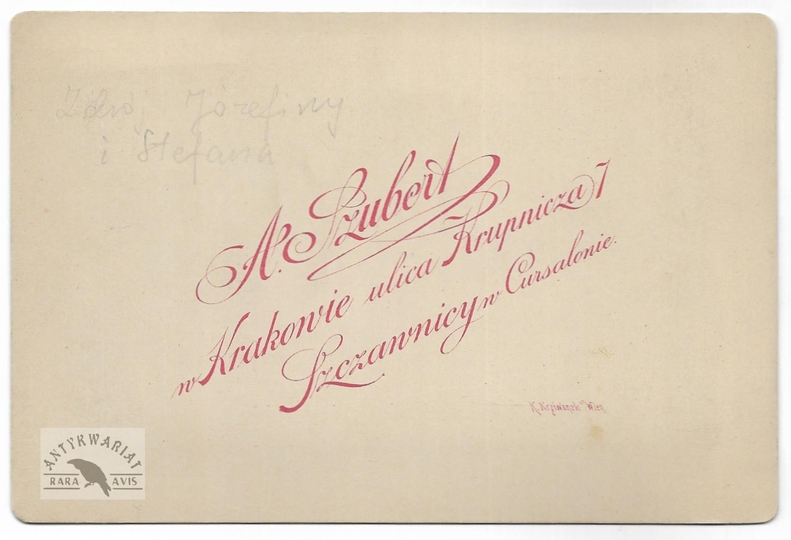 Zdrój Józefiny
i Stefana
A. Szubert
w Krakowie ulica Krupnicza 7
Szczawnicy w Cursalonie.
K. Krziwanek Wien
ANTYKWARIAT
RARA AVIS